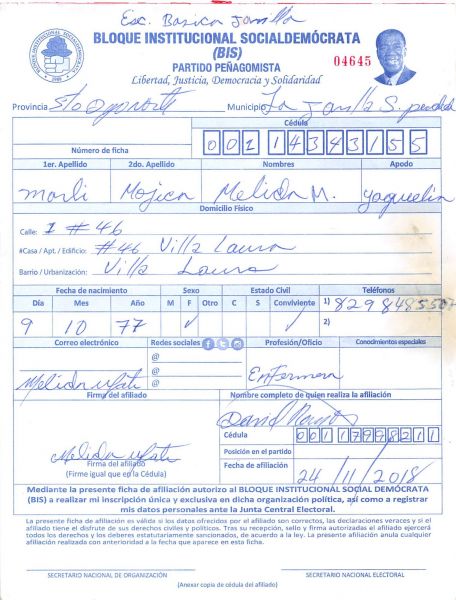 Esc. Basica Jarilla
BLOQUE INSTITUCIONAL SOCIALDEMÓCRATA
(BIS)
PARTIDO PEÑAGOMISTA
Libertad, Justicia, Democracia y Solidaridad
04645
BLOQUE INSTITUCIONAL SOCIALDEMOCRATA
BIS
Provincia: Municipio:
Cédula
Número de ficha 00114343155
1er. Apellido 2do. Apellido Nombres Apodo
Mojica Melida M.
Domicilio Físico
Calle: 1 #46
#Casa / Apt. / Edificio: #46 Villa Laura
Barrio / Urbanización: Villa Laura
Fecha de nacimiento Sexo Estado Civil Teléfonos
Día Mes Año M F Otro C S Conviviente 1) 8298485507
9 10 77 ✓ ✓ 2)
Correo electrónico Redes sociales Profesión/Oficio Conocimientos especiales
@
@
@
Enfermera
Firma del afiliado Nombre completo de quien realiza la afiliación
David
Cédula 00117998211
Posición en el partido
Firma del afiliado
(Firme igual que en la Cédula)
Fecha de afiliación 24/11/2018
Mediante la presente ficha de afiliación autorizo al BLOQUE INSTITUCIONAL SOCIAL DEMÓCRATA
(BIS) a realizar mi inscripción única y exclusiva en dicha organización política, así como a registrar
mis datos personales ante la Junta Central Electoral.
La presente ficha de afiliación es válida si los datos ofrecidos por el afiliado son correctos, las declaraciones veraces y si el
afiliado tiene el disfrute de sus derechos civiles y políticos. Tras su recepción, sello y firma autorizados el afiliado ejercerá
todos los derechos y los deberes estatutariamente sancionados, de acuerdo a la ley. La presente afiliación anula cualquier
afiliación realizada con anterioridad a la fecha que aparece en esta ficha.
SECRETARIO NACIONAL DE ORGANIZACIÓN SECRETARIO NACIONAL ELECTORAL
(Anexar copia de cédula del afiliado)